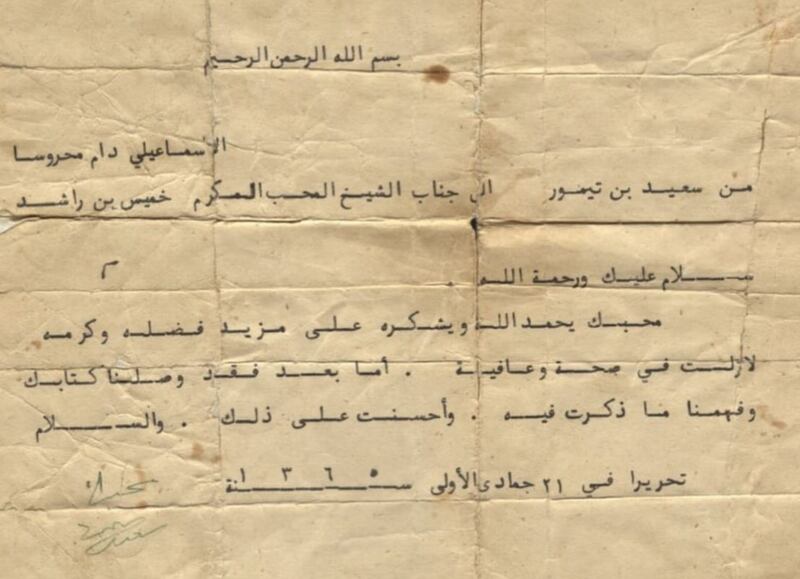 بسم الله الرحمن الرحيم
الاسماعيلي دام محروسا
من سعيد بن تيمور الى جناب الشيخ المحب المكرم خميس بن راشد
ســـلام عليك ورحمة اللــه .
م
محبك يحمد الله ويشكره على مزيد فضله وكرمه
لازلت في صحة وعافية . أما بعد فقد وصلنا كتابك
وفهمنا ما ذكرت فيه . وأحسنت على ذلك . والســـلام
تحريرا في ٢١ جمادى الأولى ســـنة ١٣٦٥
سعيد